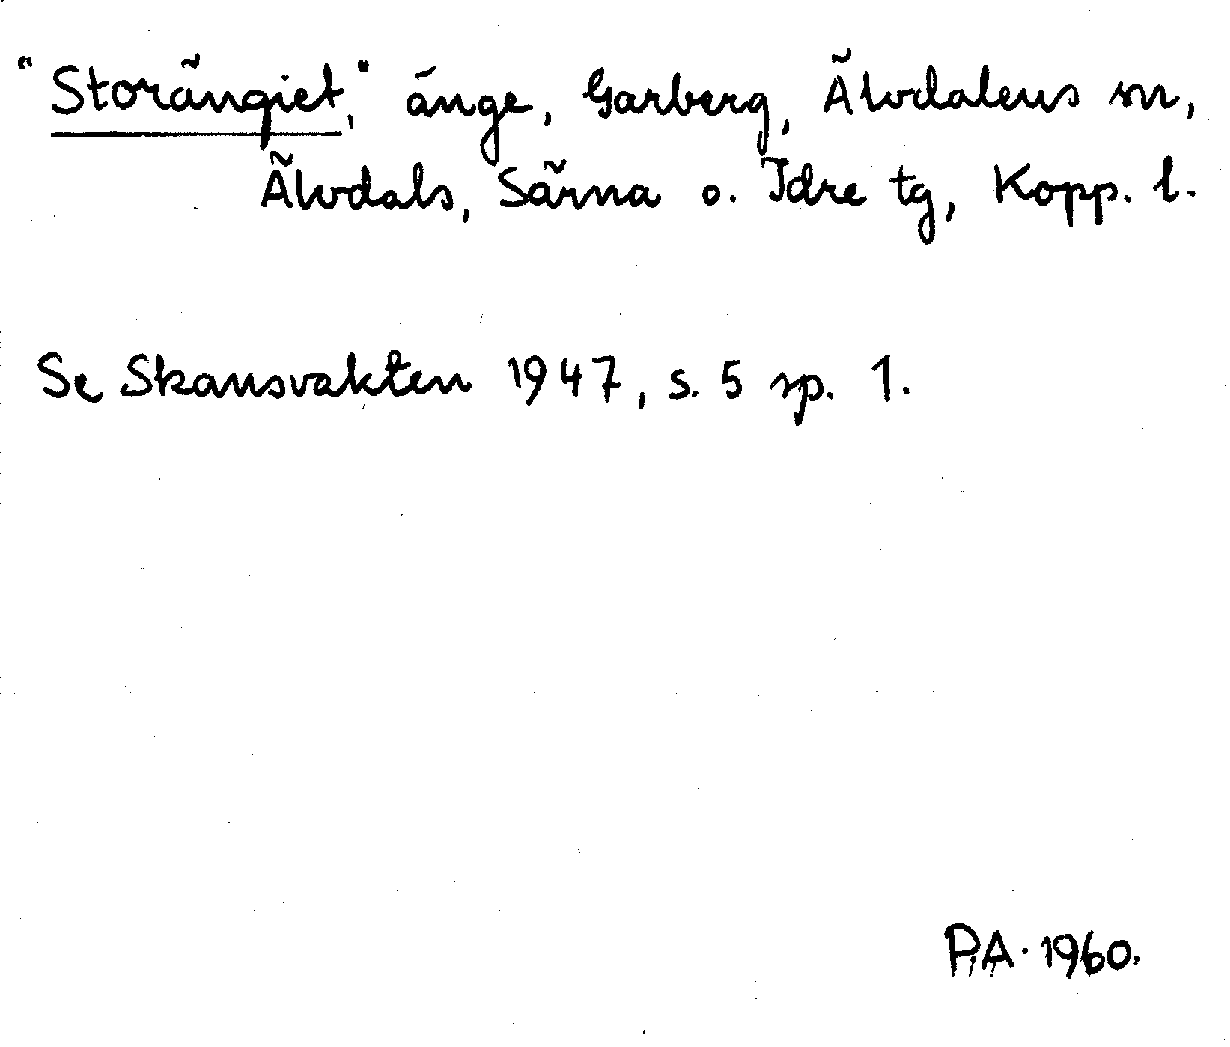 "Storängiet," änge, Garberg, Älvdalens sn,
Älvdals, Särna o. Idre tg, Kopp. l.
Se Skansvakten 1947, s. 5 sp. 1.
P.A. 1960.